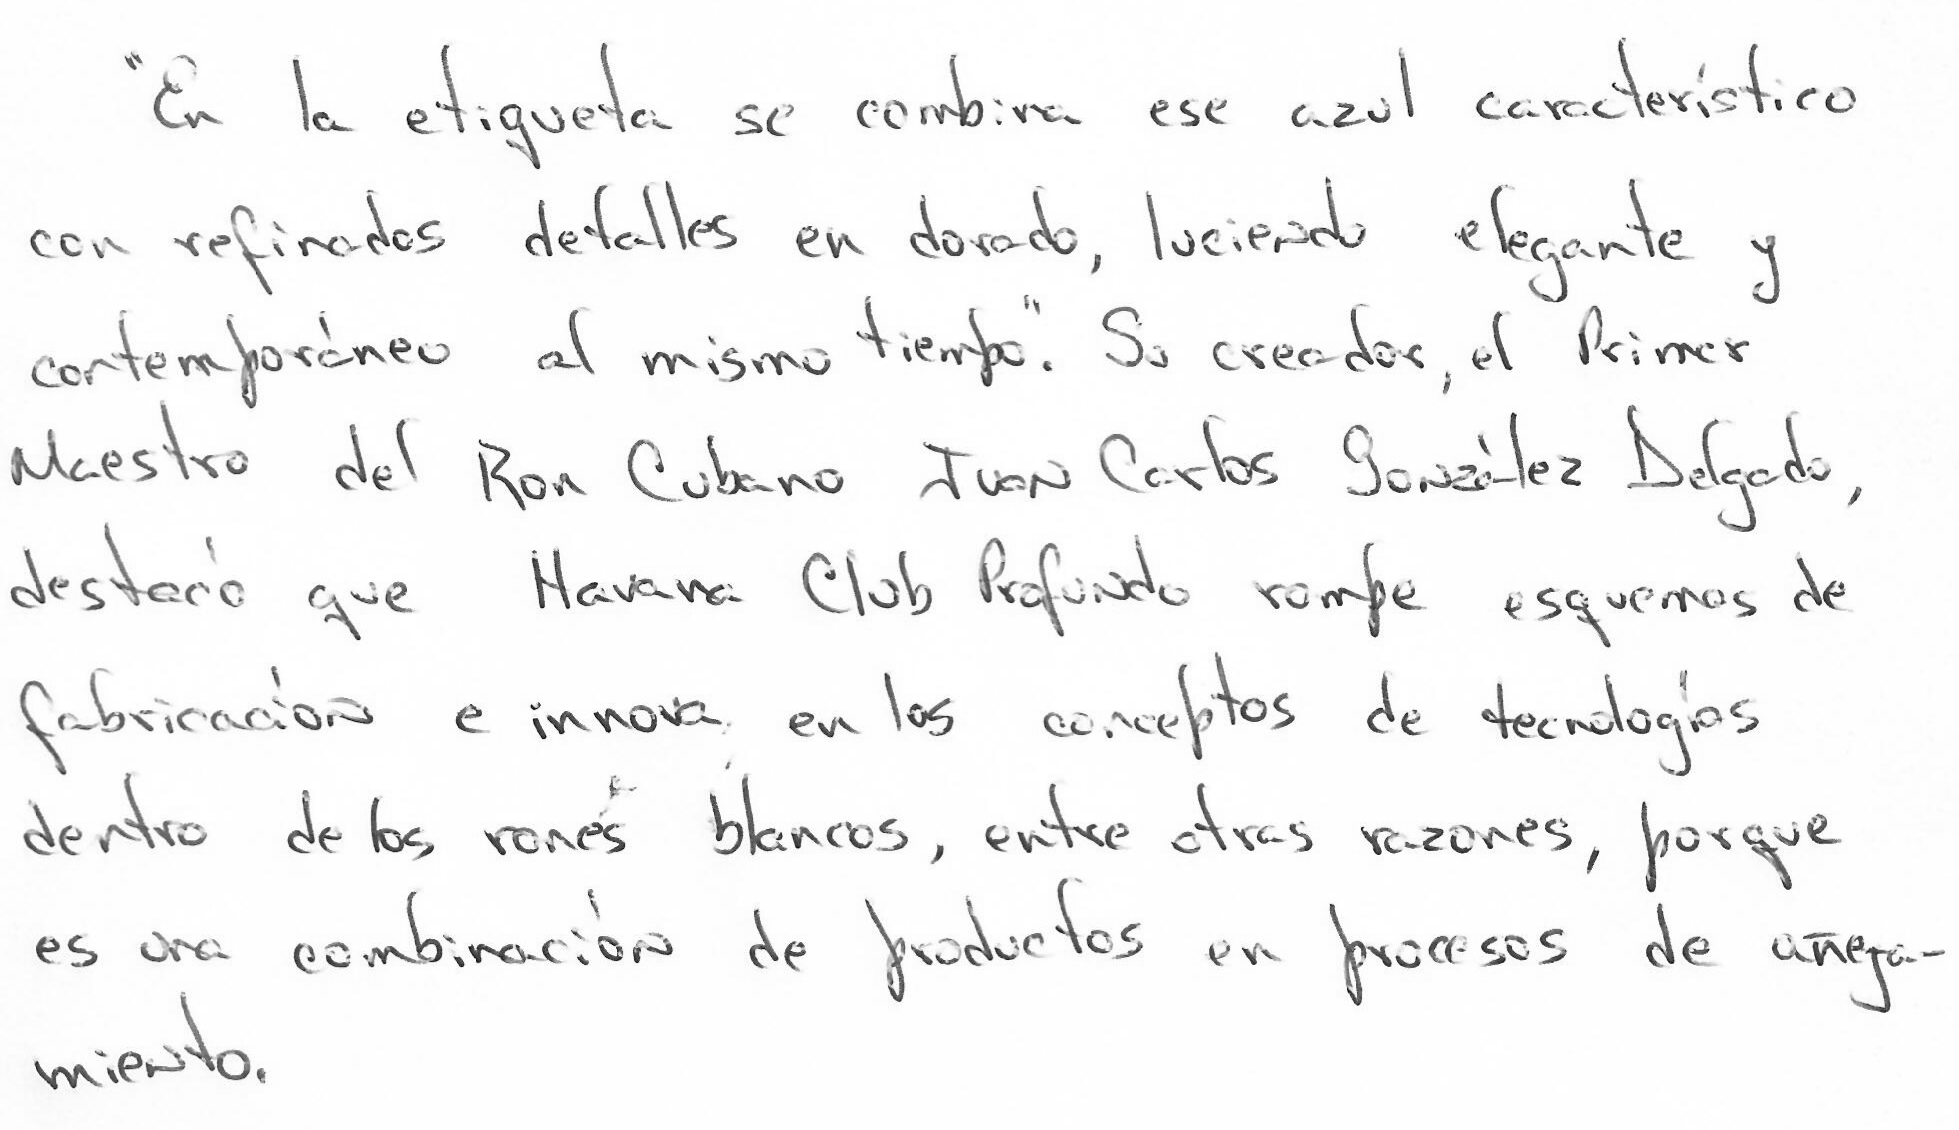 "En la etiqueta se combina ese azul característico
con refinados detalles en dorado, luciendo elegante y
contemporáneo al mismo tiempo". Su creador, el Primer
Maestro del Ron Cubano Juan Carlos González Delgado,
destacó que Havana Club Profundo rompe esquemas de
fabricación e innova en los conceptos de tecnologías
dentro de los rones blancos, entre otras razones, porque
es una combinación de productos en procesos de añeja-
miento.